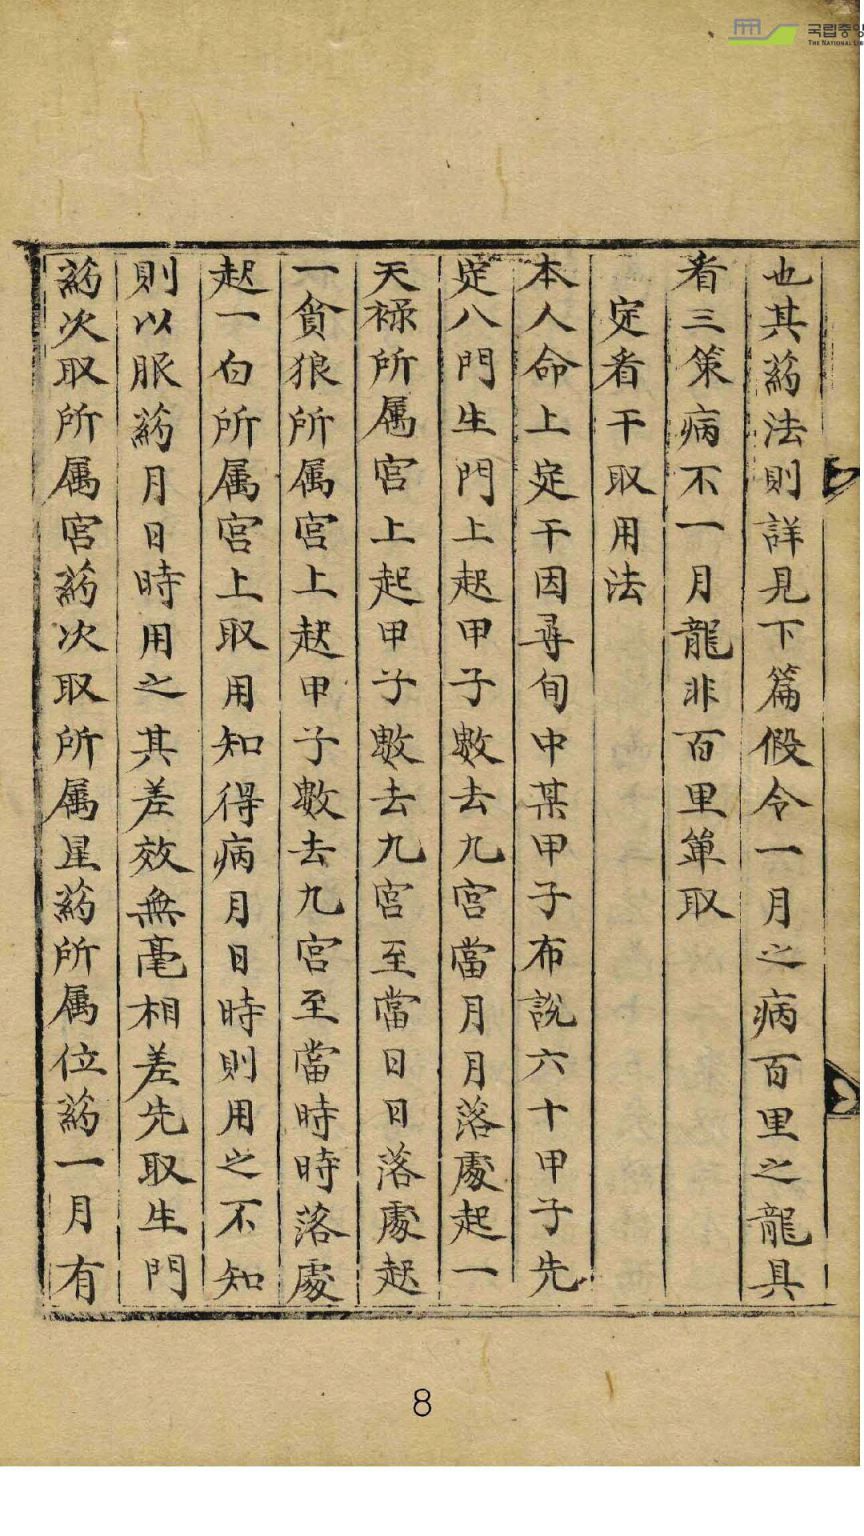 也其葯法則詳見下篇假令一月之病百里之龍具
看三策病不一月龍非百里單取
定看干取用法
本人命上定干因尋旬中某甲子布說六十甲子先
定八門生門上起甲子數去九宮當月月落處起一
天祿所属宮上起甲子數去九宮至當日日落處起
一貪狼所属宮上起甲子數去九宮至當時時落處
起一白所属宮上取用知得病月日時則用之不知
則以服葯月日時用之其差效無毫相差先取生門
葯次取所属宮葯次取所属星葯所属位葯一月有
8
국립중앙
THE NATIONAL LIB